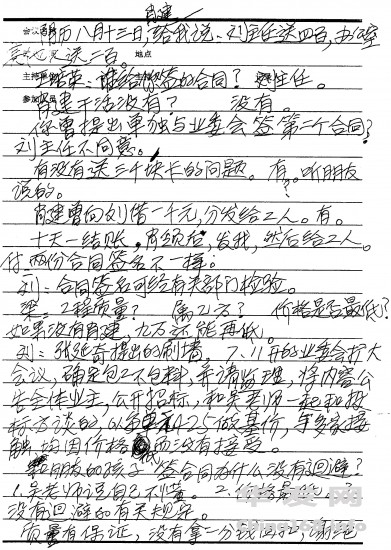 肖建一
会议名称 阴历八月十三日,给我说:刘主任送四百,办公室
送二百。 地点
主持 结束:谁给你签的合同? 刘主任。
参加人员 肖建干活没有? 没有。
你曾提出单独与业委会签第二个合同?
刘主任不同意。
有没有送三千块卡的问题。有。听朋友
说的。
肖建曾向刘借一千元,分发给工人。有。
十天一结账,肖领后,发我,然后给工人。
付:两份合同签名不一样。
刘:合同签名可经有关部门检验。
梁:工程质量? 属乙方? 价格是否最低?
如果没有肖建,九万还能再低。
刘:张延奇提出的刷墙。7、11开的业委会扩大
会议,确定包工不包料,并请监理,将内容公
告全体业主,公开招标,和吴老师一起和投
标方谈的,以每 4.25的基价,与多家接
触,均因价格 而没有接受。
朋友的孩子 签合同为什么没有回避?
1.吴老师说自己不懂。2.价格最低
没有回避的有关规定。
质量有保证,没有拿一分钱回扣,